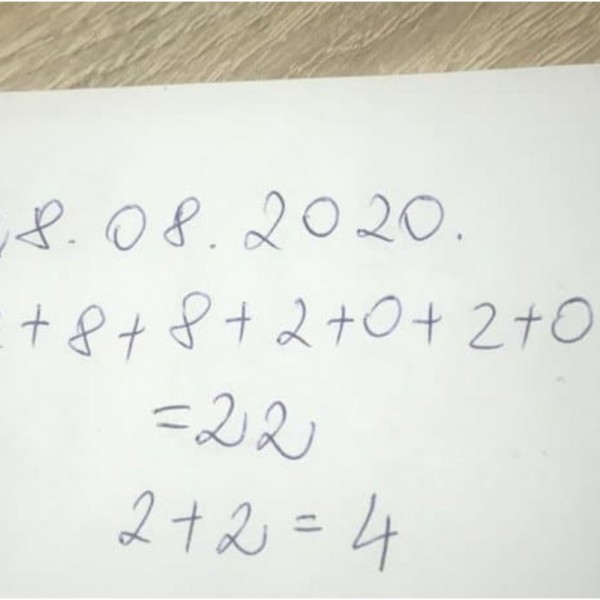 8.08.2020.
+8+8+2+0+2+0
=22
2+2=4